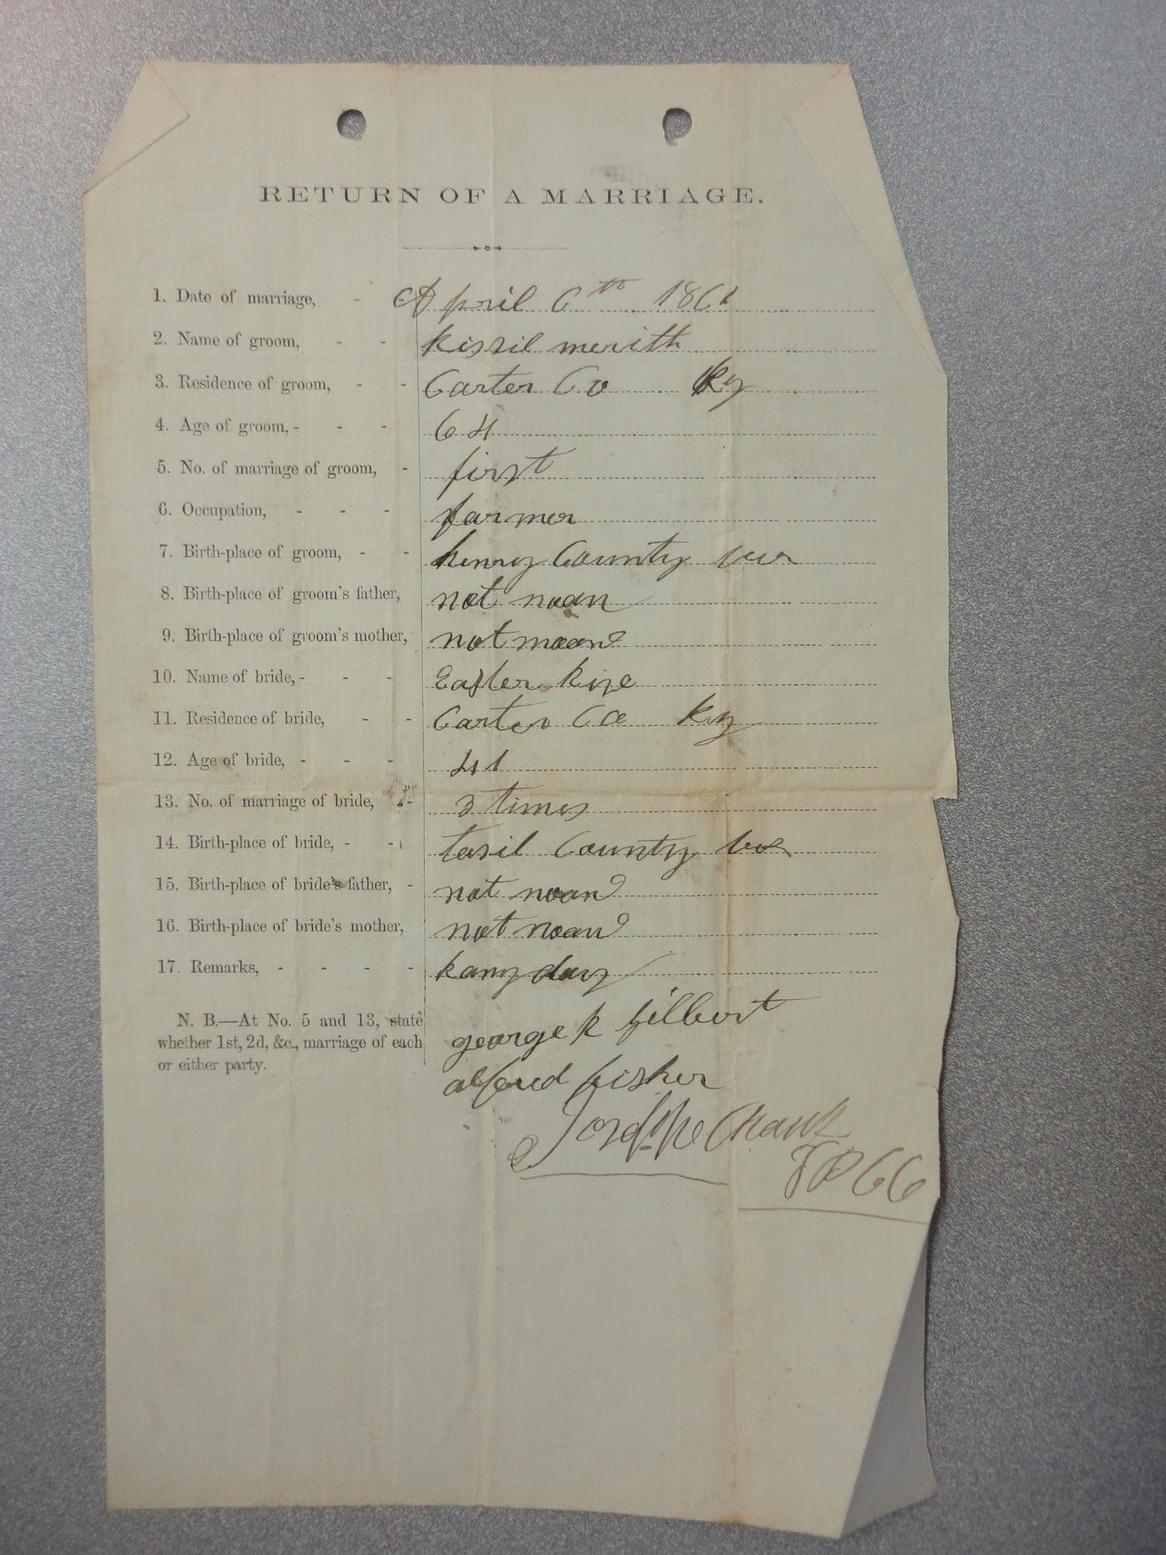 RETURN OF A MARRIAGE.
1. Date of marriage, - April 6th 1861
2. Name of groom, - - kissil merith
3. Residence of groom, - - Carter Co Ky
4. Age of groom, - - - 64
5. No. of marriage of groom, - first
6. Occupation, - - - farmer
7. Birth-place of groom, - - henry County
8. Birth-place of groom's father, not noan
9. Birth-place of groom's mother, not noan
10. Name of bride, - - - Easter kize
11. Residence of bride, - - Carter Co Ky
12. Age of bride, - - - 41
13. No. of marriage of bride, - 3 times
14. Birth-place of bride, - - tasil County
15. Birth-place of bride's father, - not noan
16. Birth-place of bride's mother, not noan
17. Remarks, - - - -
N. B.—At No. 5 and 13, state
whether 1st, 2d, &c., marriage of each
or either party.
george k gilbert
alfred fisher